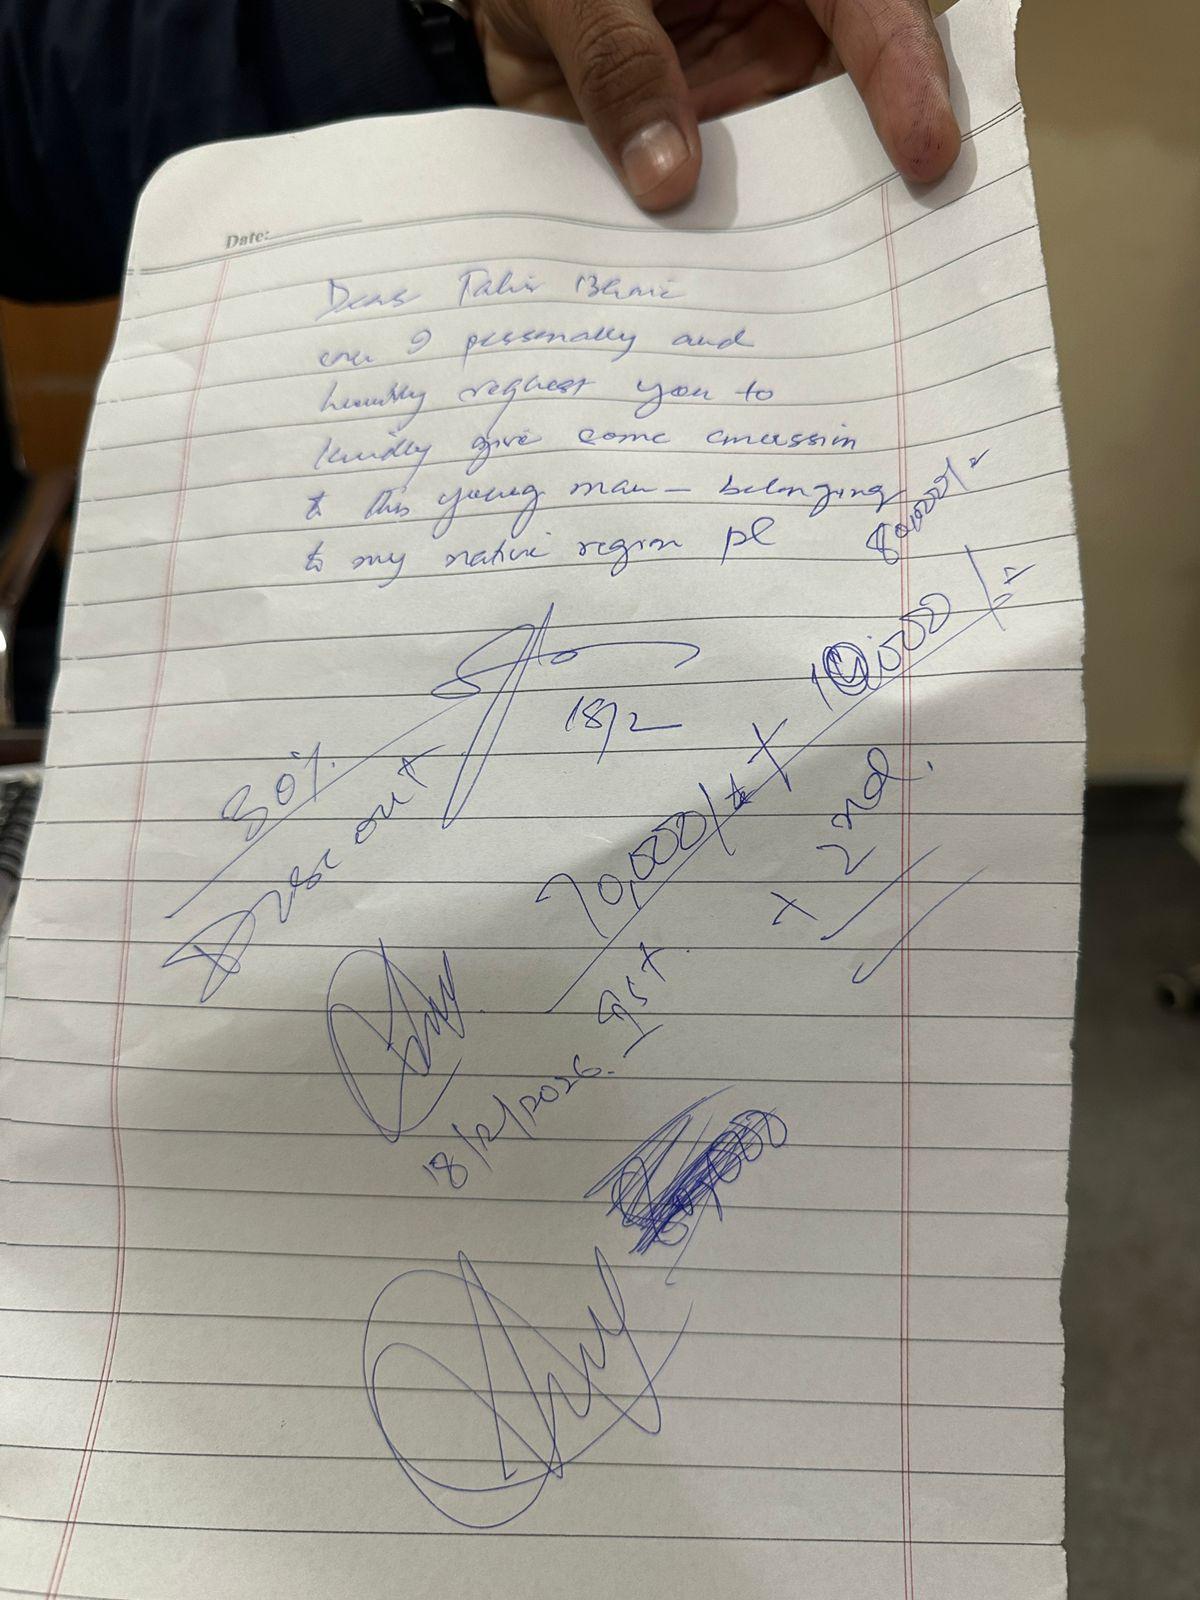 Date:
Dear Tahir Bhai
I personally and
humbly request you to
kindly give some
to this young man - belonging
to my native region pl
80,000/=
18/2
30%
out
70,000/= + 10,000/=
Ist + 2nd.
18/2/2026.